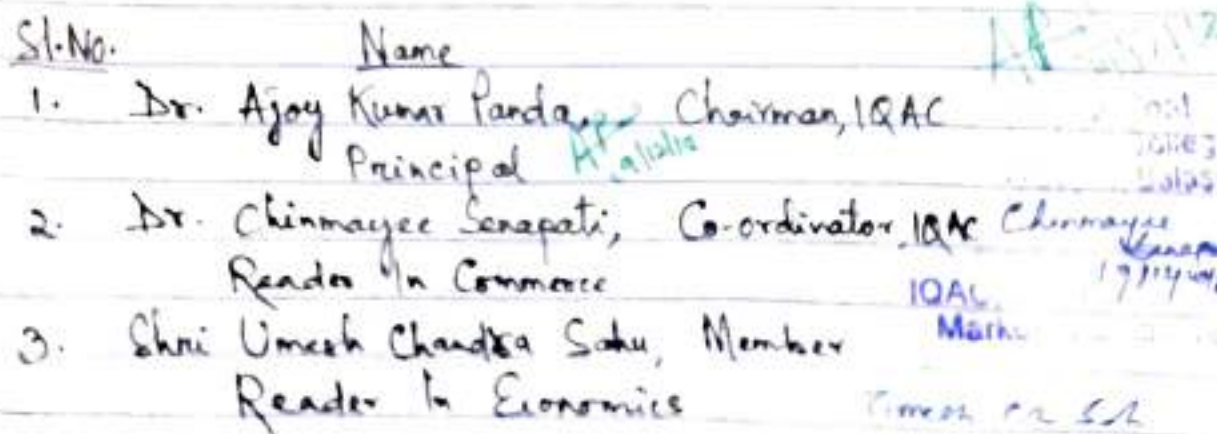 Sl.No. Name
1. Dr. Ajay Kumar Panda, Chairman, IQAC
Principal
2. Dr. Chinmayee Senapati, Co-ordinator, IQAC Chinmayee
Reader In Commerce IQAC,
3. Shri Umesh Chandra Sahu, Member
Reader In Economics